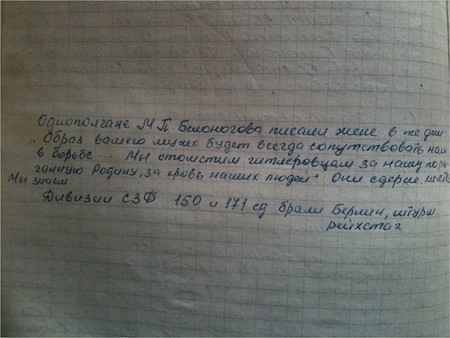 Однополчане М.П. Белоногова писали жене в те дни:
„Образ вашего мужа будет всегда сопутствовать нам
в борьбе... Мы отомстим гитлеровцам за нашу пору-
ганную Родину, за кровь наших людей". Они сдерж.
Мы знаем.
Дивизии СЗФ 150 и 171 сд брали Берлин, штурм.
рейхстаг